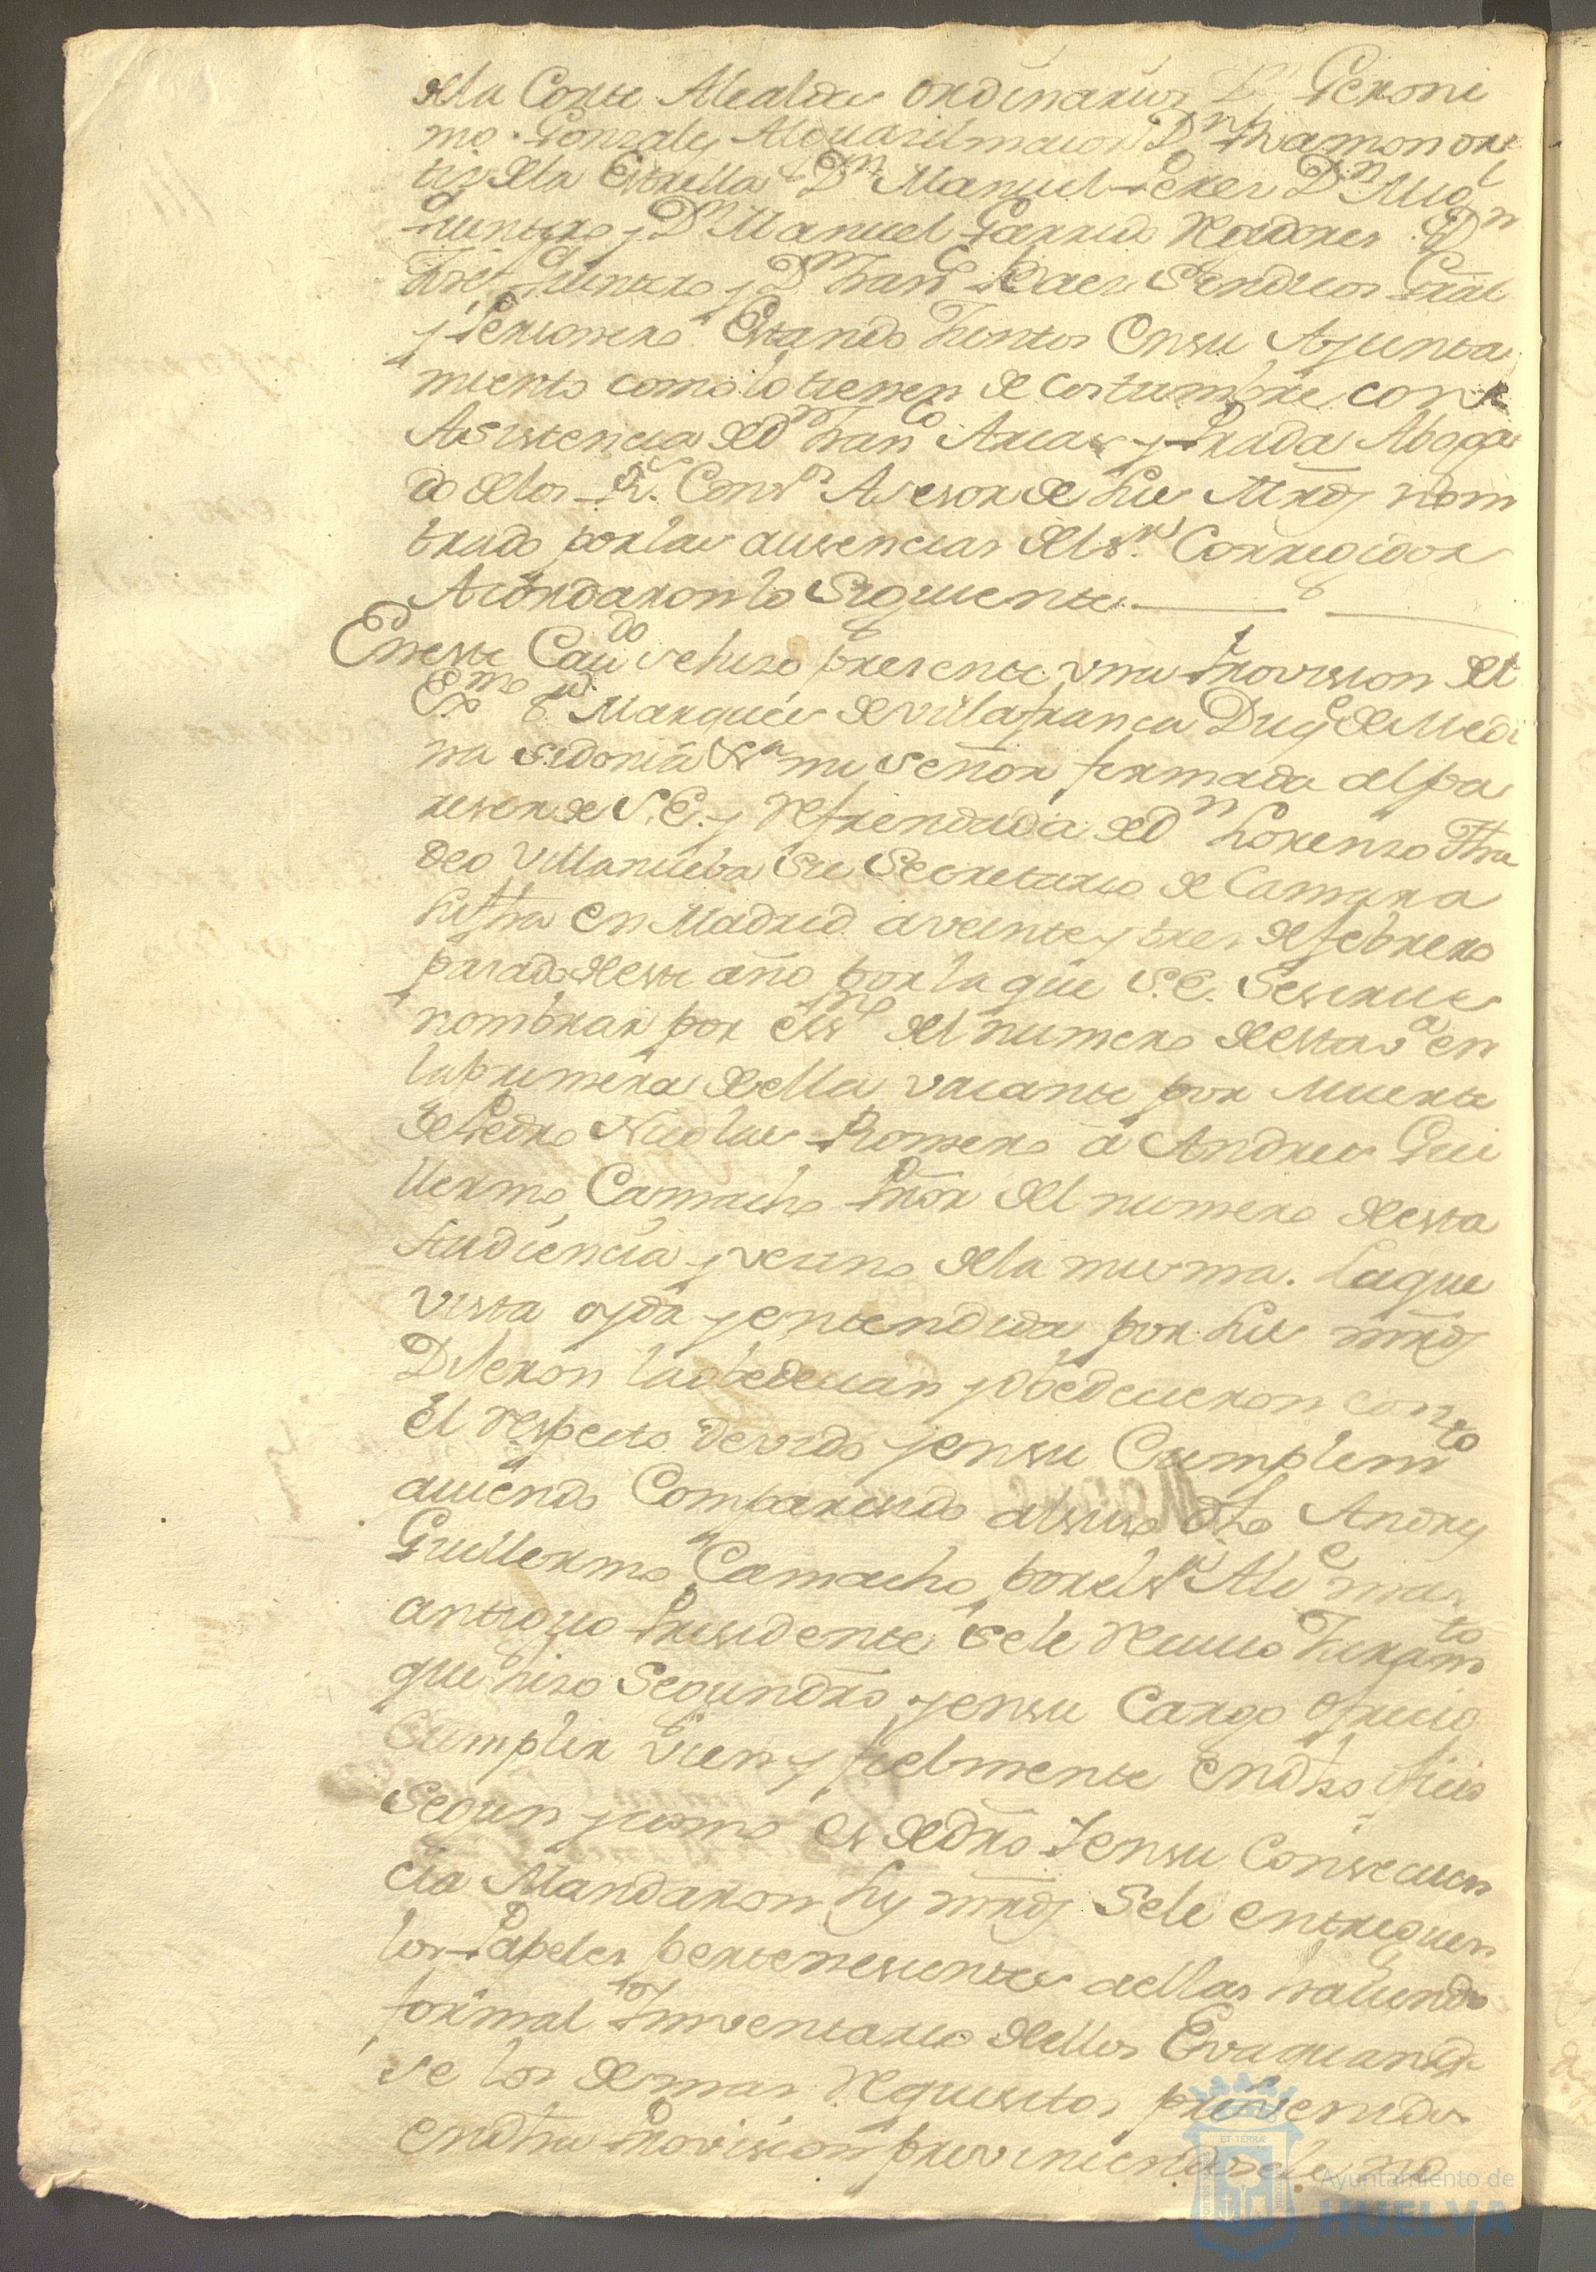 dela Corte Alcaldes ordinarios Dn Geroni
mo Gonzales Alguasil maior Dn Ramon or
tiz dela Estrella Dn Manuel Perez Dn Migl
Quintero y Dn Manuel Garrido Rexidores Dn
Jph Quintero y Dn Franco Baez Sindicos Gral
y Personero Estando Juntos En su Ayunta
miento como lo tienen de Costumbre con
Asistencia de Dn Franco Arias y Prada Aboga
do delos Rs. Consos Asesor de sus Mrds nom
brado por las ausencias del Sr. Corregidor
Acordaron lo Siguiente
En este Cavdo se hizo presente una Provision del
Exmo Sr. Marques de Villafranca Duqe de Medi
na Sidonia &a mi señor firmada al pa
reser de S.E. y Refrendada de Dn Lorenzo Tha
deo Villanueba su Secretario de Camara
su fha en Madrid a veinte y tres de febrero
pasado deeste año por la que S.E. Se sirve
nombrar por essno del numero deesta va en
la primera deella vacante por Muerte
de Pedro Nicolas Romero a Andres Gui
llermo Camacho Prōr del numero deesta
Audiencia y vecino dela misma. La que
vista oyda y entendida por sus mrds
Dixeron la obedecian y obedecieron con
El respecto devido y en su Cumplimto
aviendo Comparesido al sitio dho Andres
Guillermo Camacho por el Sr Alce mas
antiguo Presidente se le Recivio Juramto
que hizo Segun dro y en su Cargo ofrecio
Cumplir vien y fielmente En dho oficio
Segun y como es de dro Y en su Consecuen
cia Mandaron sus mrds Se le entreguen
los Papeles pertenesientes a ellas haciendo
formal Inventario deellos Evacuando
se los demas Requisitos prevenidos
en dha Provision previniendosele no
Ayuntamiento de
HUELVA